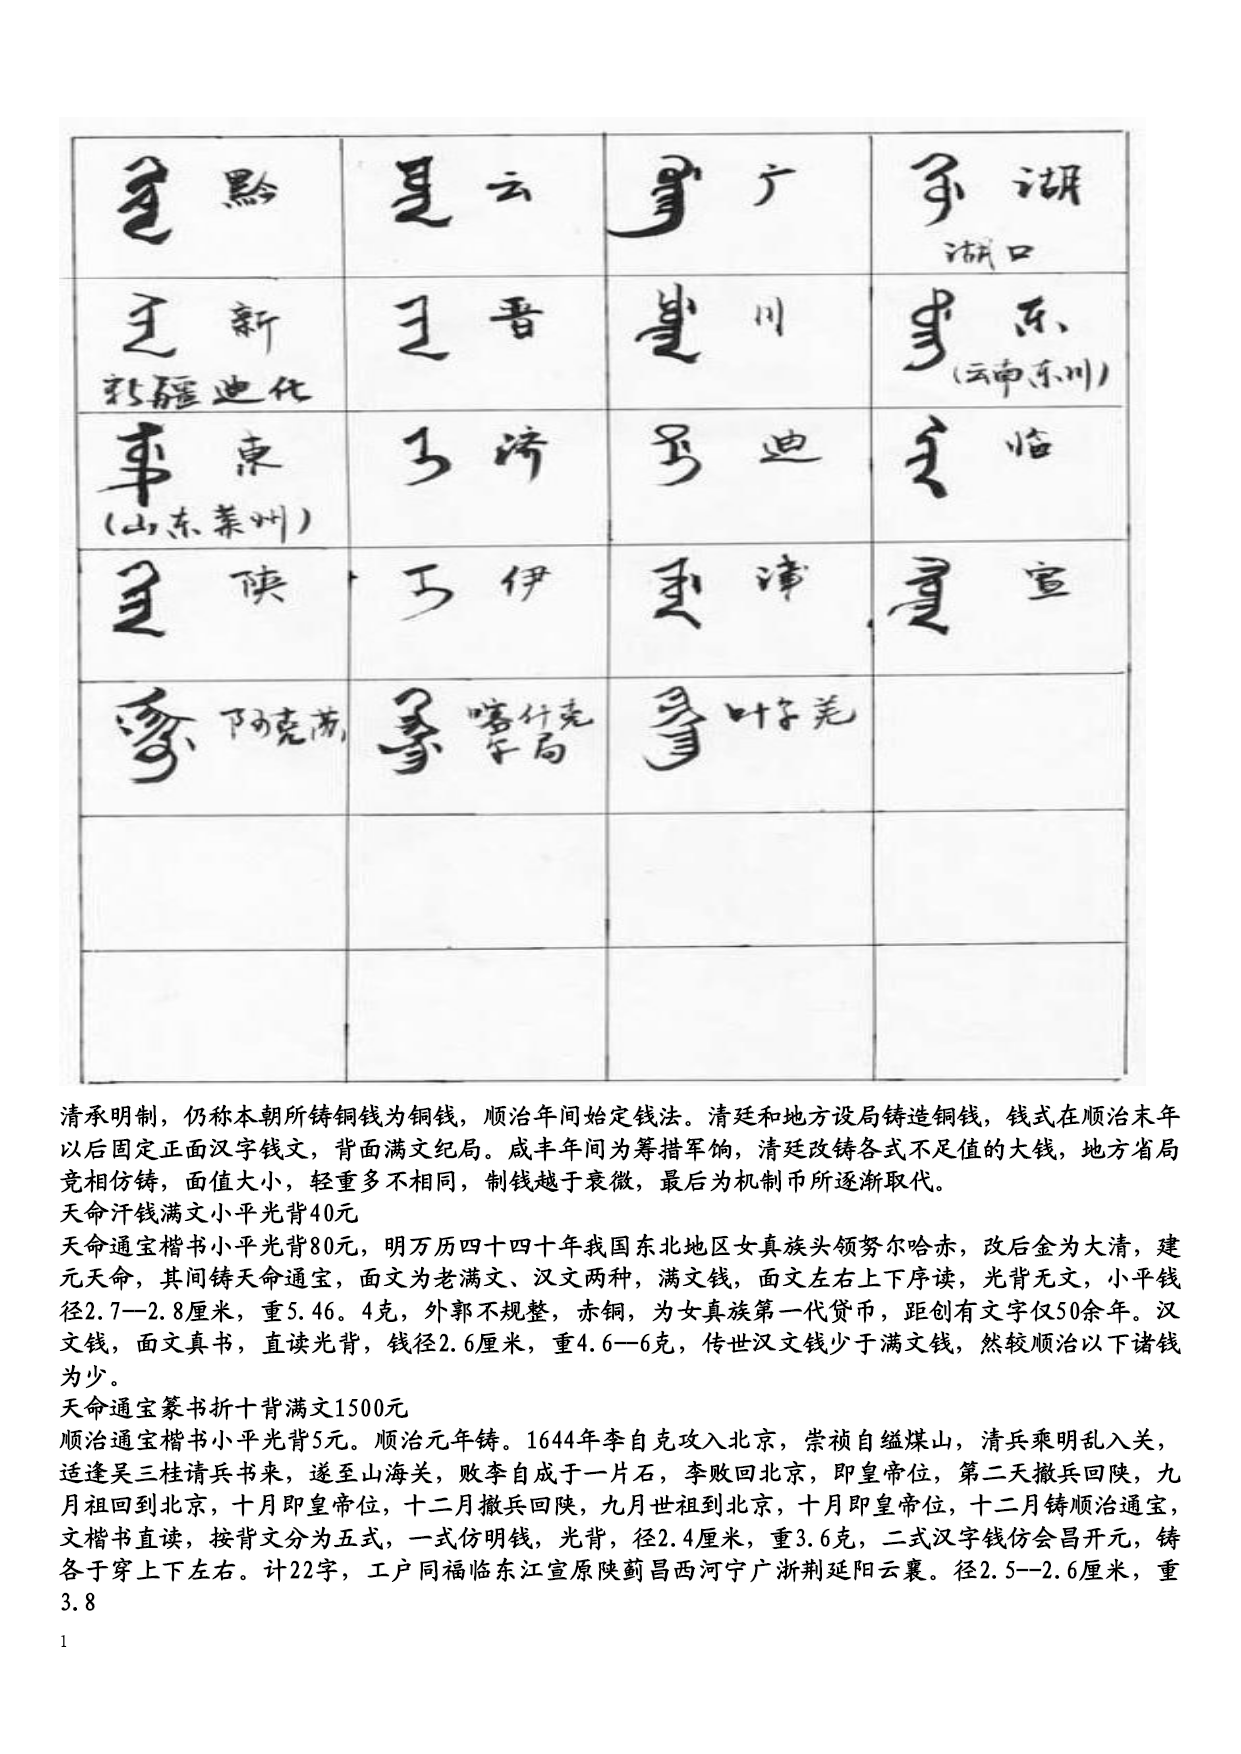 黔 云 广 湖
湖口
新 晋 川 东
新疆迪化 (云南东川)
東 济 迪 临
(山东莱州)
陕 伊 津 宣
阿克苏 喀什克 叶尔羌
尔局
清承明制，仍称本朝所铸铜钱为铜钱，顺治年间始定钱法。清廷和地方设局铸造铜钱，钱式在顺治末年
以后固定正面汉字钱文，背面满文纪局。咸丰年间为筹措军饷，清廷改铸各式不足值的大钱，地方省局
竞相仿铸，面值大小，轻重多不相同，制钱越于衰微，最后为机制币所逐渐取代。
天命汗钱满文小平光背40元
天命通宝楷书小平光背80元，明万历四十四十年我国东北地区女真族头领努尔哈赤，改后金为大清，建
元天命，其间铸天命通宝，面文为老满文、汉文两种，满文钱，面文左右上下序读，光背无文，小平钱
径2.7--2.8厘米，重5.46。4克，外郭不规整，赤铜，为女真族第一代贷币，距创有文字仅50余年。汉
文钱，面文真书，直读光背，钱径2.6厘米，重4.6--6克，传世汉文钱少于满文钱，然较顺治以下诸钱
为少。
天命通宝篆书折十背满文1500元
顺治通宝楷书小平光背5元。顺治元年铸。1644年李自克攻入北京，崇祯自缢煤山，清兵乘明乱入关，
适逢吴三桂请兵书来，遂至山海关，败李自成于一片石，李败回北京，即皇帝位，第二天撤兵回陕，九
月祖回到北京，十月即皇帝位，十二月撤兵回陕，九月世祖到北京，十月即皇帝位，十二月铸顺治通宝，
文楷书直读，按背文分为五式，一式仿明钱，光背，径2.4厘米，重3.6克，二式汉字钱仿会昌开元，铸
各于穿上下左右。计22字，工户同福临东江宣原陕蓟昌西河宁广浙荆延阳云襄。径2.5--2.6厘米，重
3.8
1